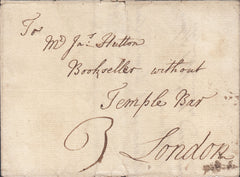 To
Mr Jas. Hutton
Bookseller without
Temple Bar
3 London